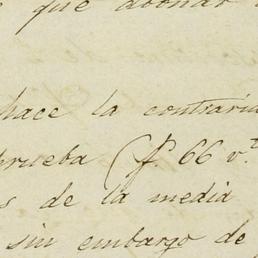 que abonar
hace la contrari
prueba (f. 66 v.ta
s de la media
sin embargo de